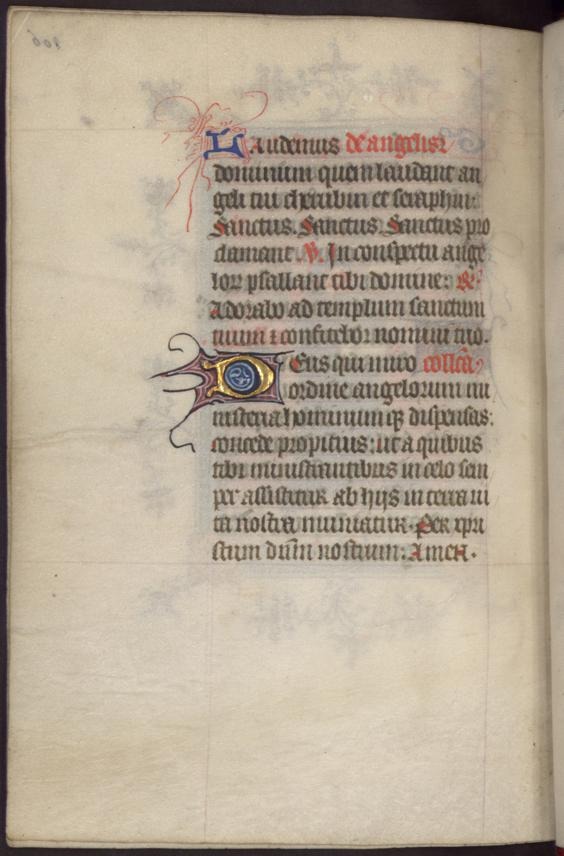 Laudemus de angelis
dominum quem laudant an
geli tui cherubin et seraphin:
Sanctus. Sanctus. Sanctus pro
clamant. V. In conspectu ange
lor psallam tibi domine: R.
Adorabo ad templum sanctum
tuum ⁊ confitebor nomini tuo.
Deus qui miro collcā
ordine angelorum mi
nisteria hominum qȝ dispensas:
concede propitius: ut a quibus
tibi ministrantibus in celo sem
per assistitur ab hijs in terra ui
ta nostra muniatur. Per xpri
stum dūm nostrum: Amen.